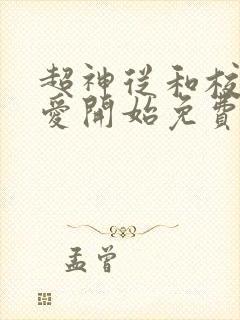 超神从和校
爱開始免費
孟曾